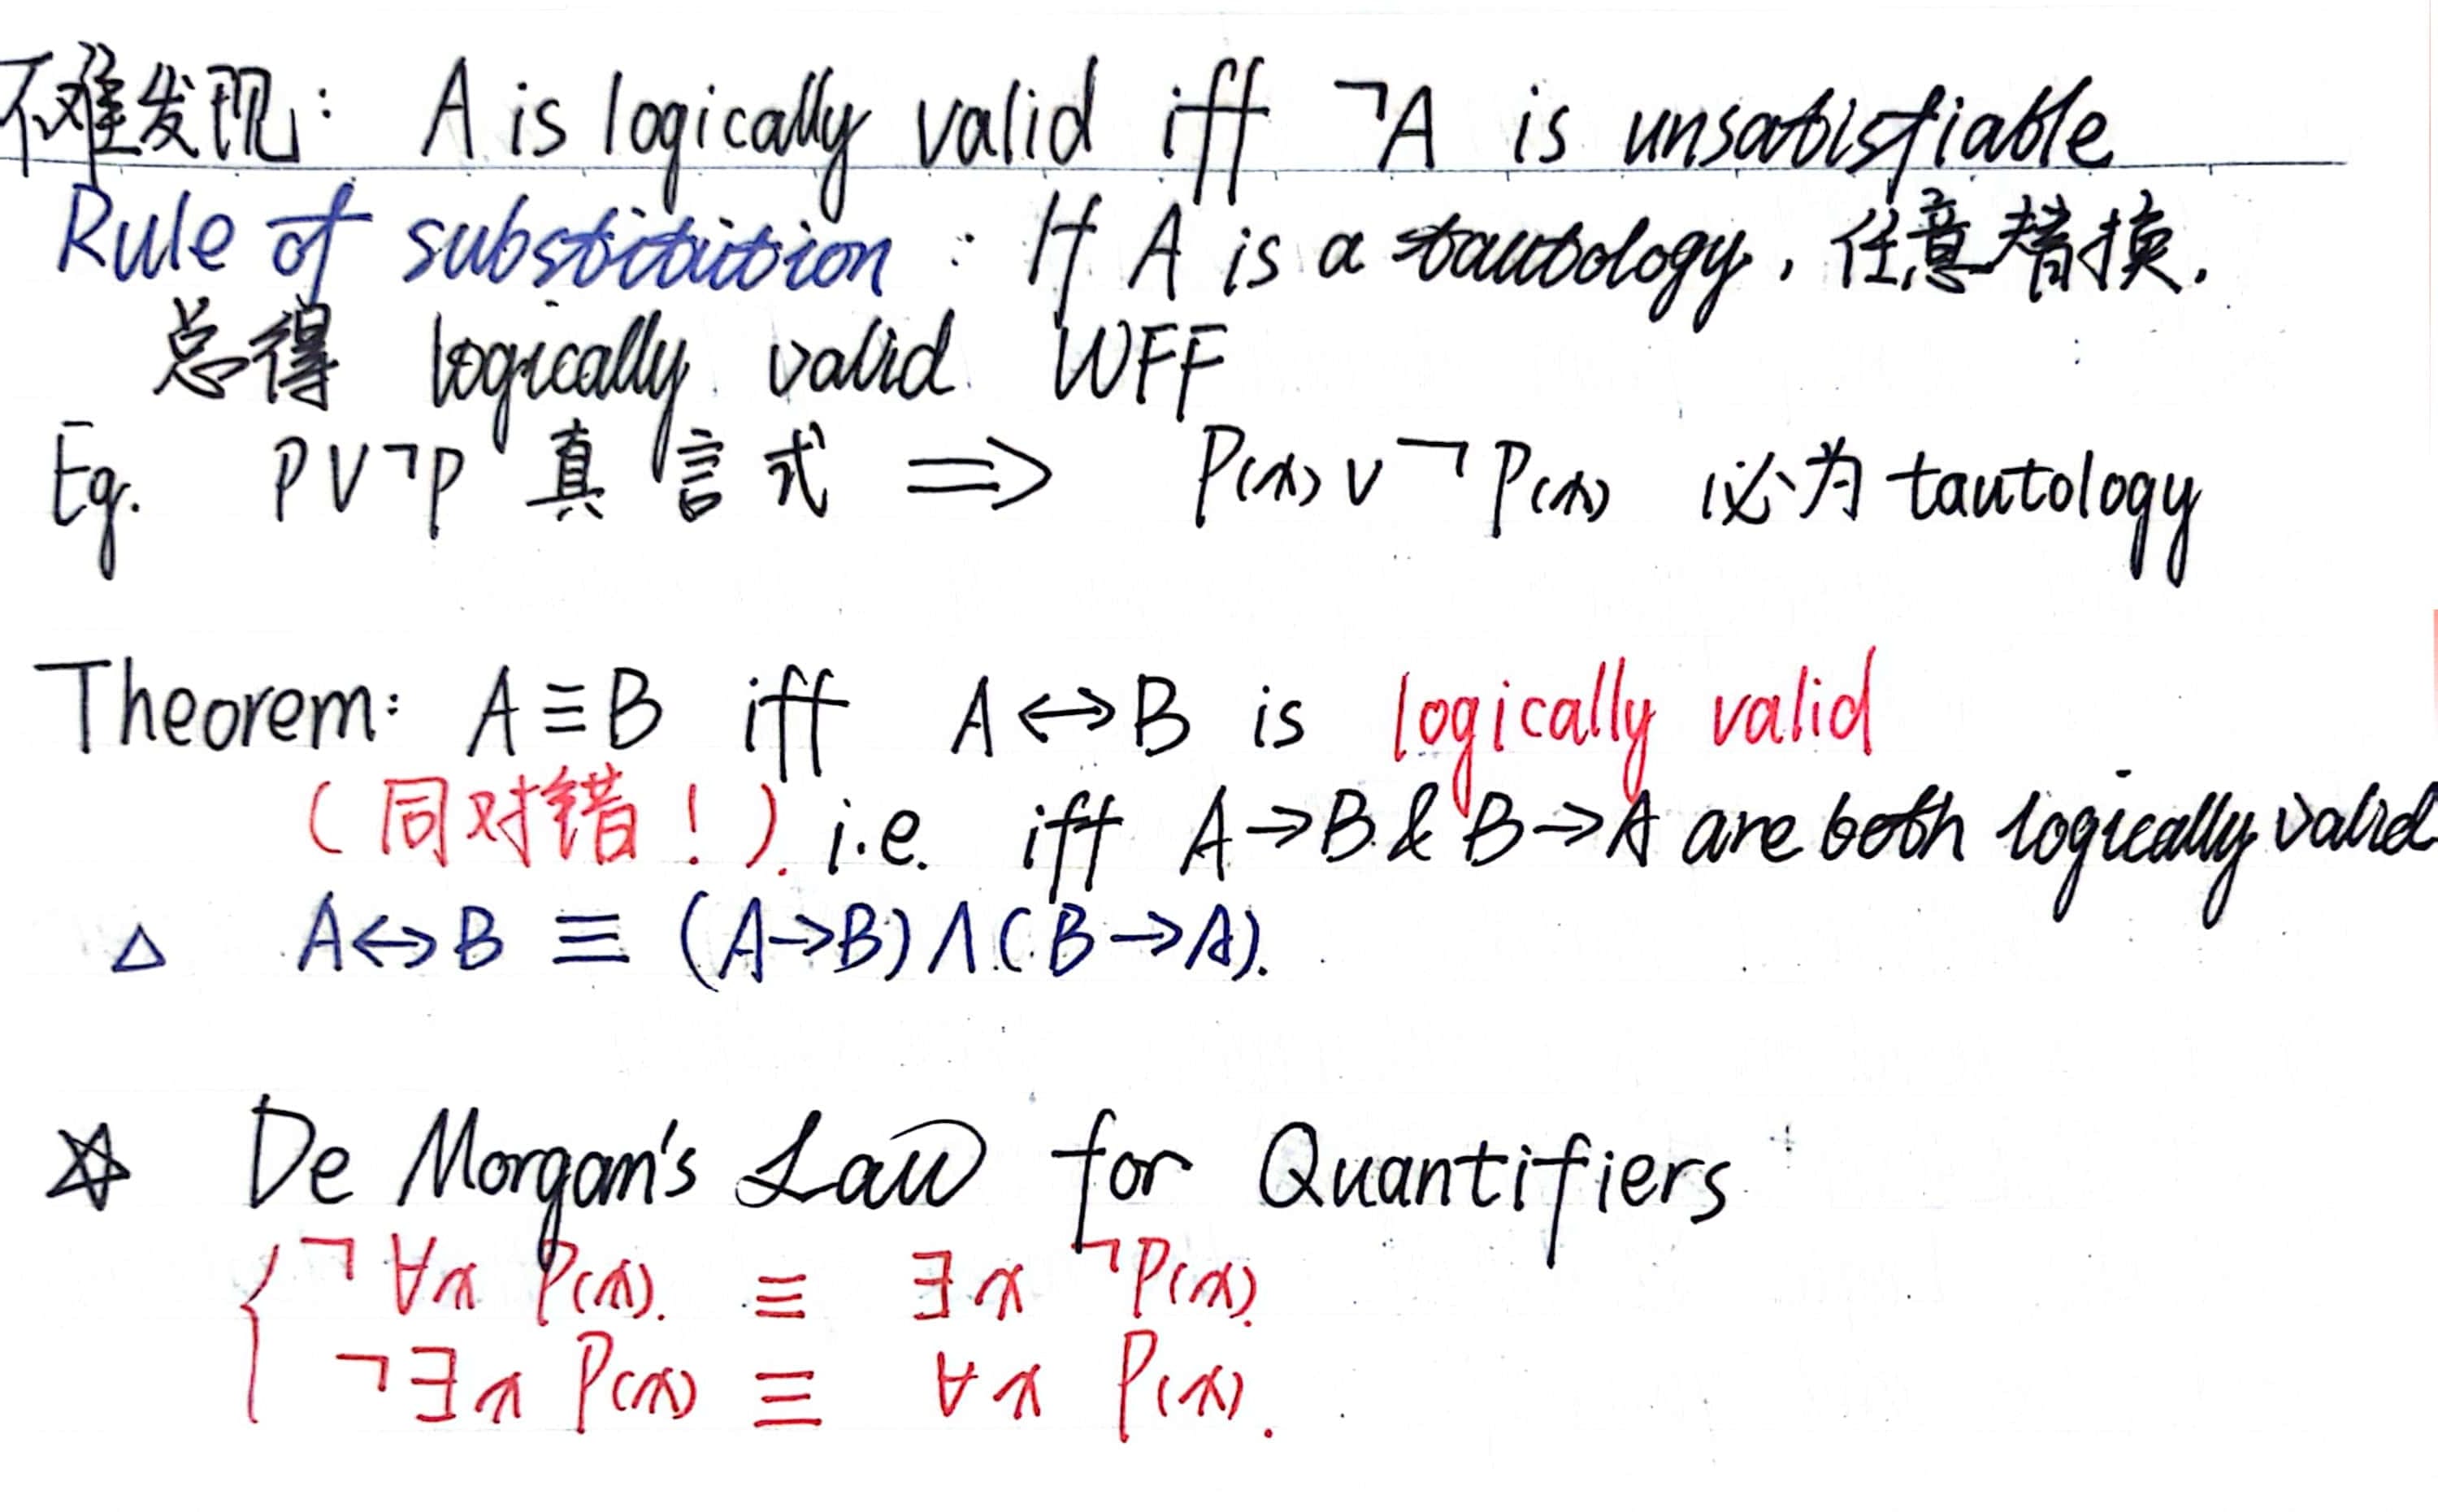 不难发现: A is logically valid iff ¬A is unsatisfiable
Rule of substitution: If A is a tautology, 任意替换.
总得 logically valid WFF
Eg. P∨¬P 真言式 ⟹ P(x)∨¬P(x) 必为 tautology
Theorem: A≡B iff A↔B is logically valid
(同对错!). i.e. iff A→B & B→A are both logically valid
△ A↔B ≡ (A→B)∧(B→A).
☆ De Morgan's Law for Quantifiers
{ ¬∀x P(x). ≡ ∃x ¬P(x).
¬∃x P(x) ≡ ∀x P(x).